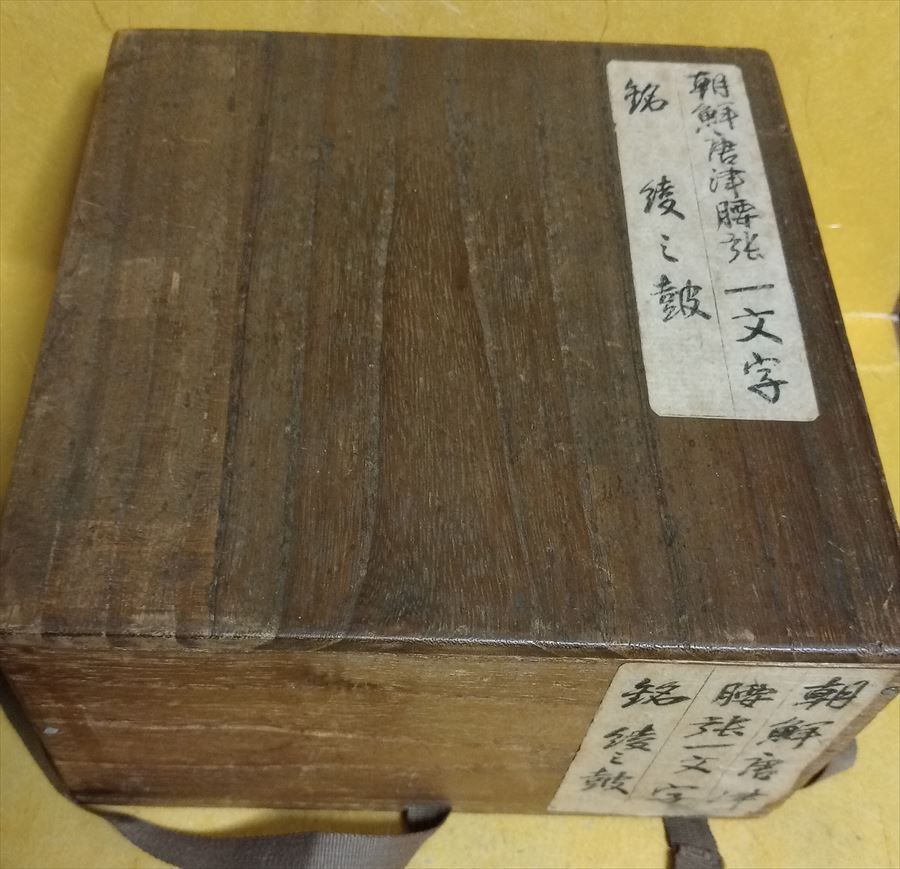 朝鮮唐津腰張一文字
銘 綾之鼓
朝鮮唐津
腰張一文字
銘 綾之鼓